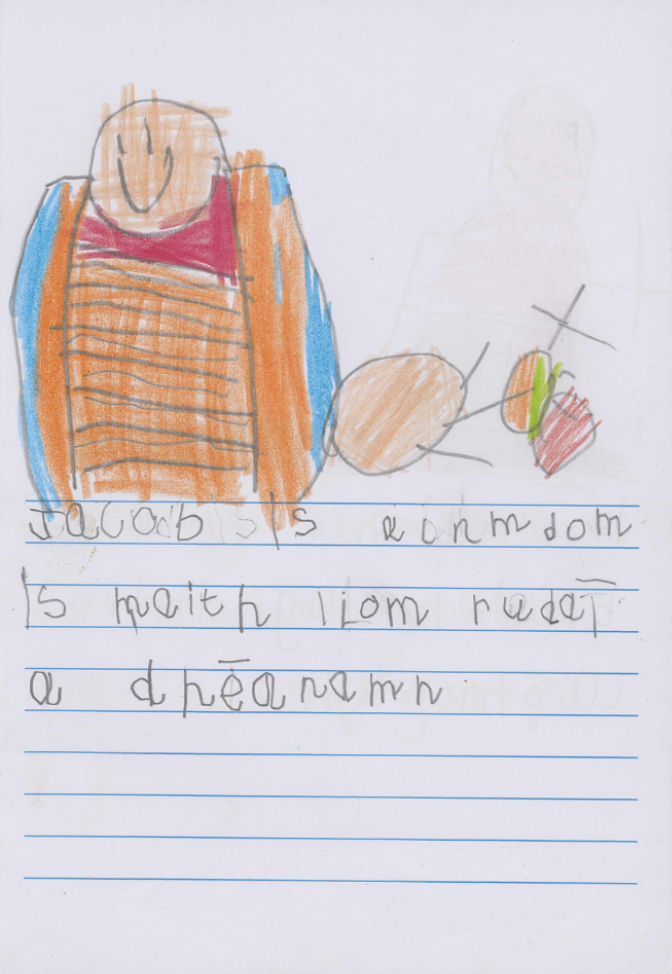 Jacob Is ainm dom
Is maith liom rudaí
a dhéanamh